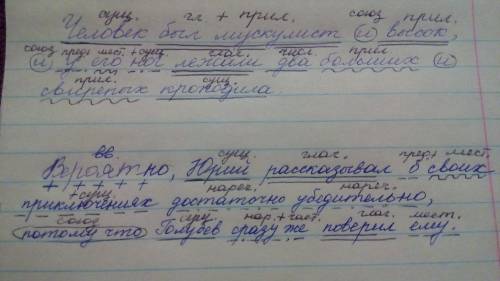 сущ. гл + прил. союз прил.
Человек был мускулист и высок,
союз пред+ мест. + сущ. глаг. числ. прил
и у его ног лежали два больших и
прил. сущ.
свирепых крокодила.
вв. сущ. глаг. пред+ мест.
Вероятно, Юрий рассказывал о своих
+сущ. нареч. нареч.
приключениях достаточно убедительно,
союз сущ. нар. + част. глаг. мест.
потому что Голубев сразу же поверил ему.